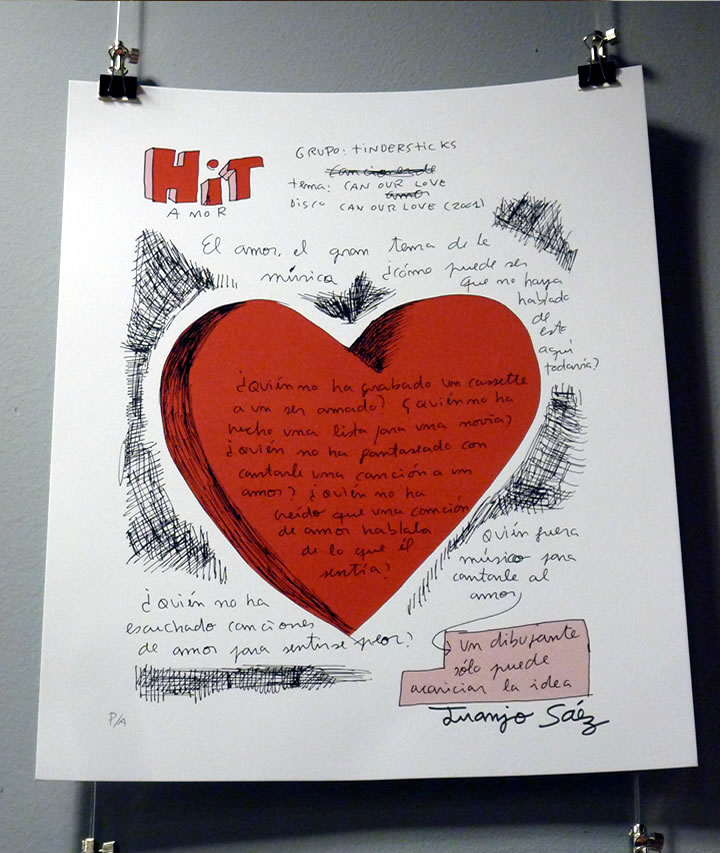 HIT
AMOR
GRUPO: TINDERSTICKS
tema: CAN OUR LOVE
Disco CAN OUR LOVE (2001)
El amor, el gran tema de la
música ¿cómo puede ser
que no haya
hablado
de
esto
aquí
todavía?
¿Quién no ha grabado un cassette
a un ser amado? ¿quién no ha
hecho una lista para una novia?
¿quién no ha fantaseado con
cantarle una canción a un
amor? ¿quién no ha
creído que una canción
de amor hablaba
de lo que él
sentía?
Quién fuera
músico para
cantarle al
amor
¿Quién no ha
escuchado canciones
de amor para sentirse peor?
un dibujante
sólo puede
acariciar la idea
Juanjo Sáez
P/A